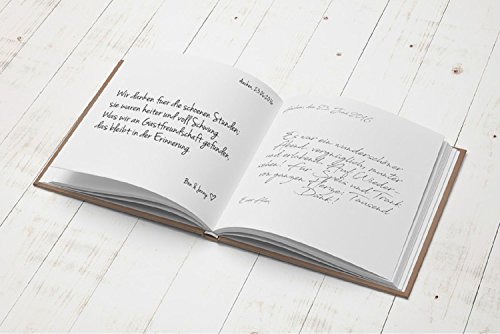 Aachen, 23.06.2016
Wir danken fuer die schoenen Stunden,
sie waren heiter und voll Schwung
Was wir an Gastfreundschaft gefunden,
das bleibt in der Erinnerung.
Ben & Jenny ♡
Aachen, den 23. Juni 2016
Es war ein wunderschöner
Abend, vergnüglich, munter
und
Für Speis und Trank
Tausend
Dank!
Euer